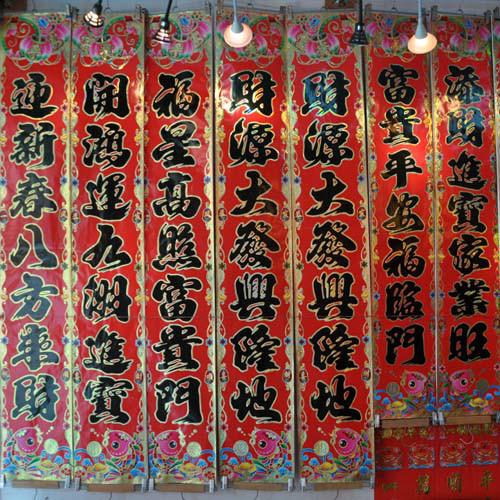 添財進寶家業旺
富貴平安福臨門
財源大發興隆地
財源大發興隆地
福星高照富貴門
開鴻運九洲進寶
迎新春八方來財